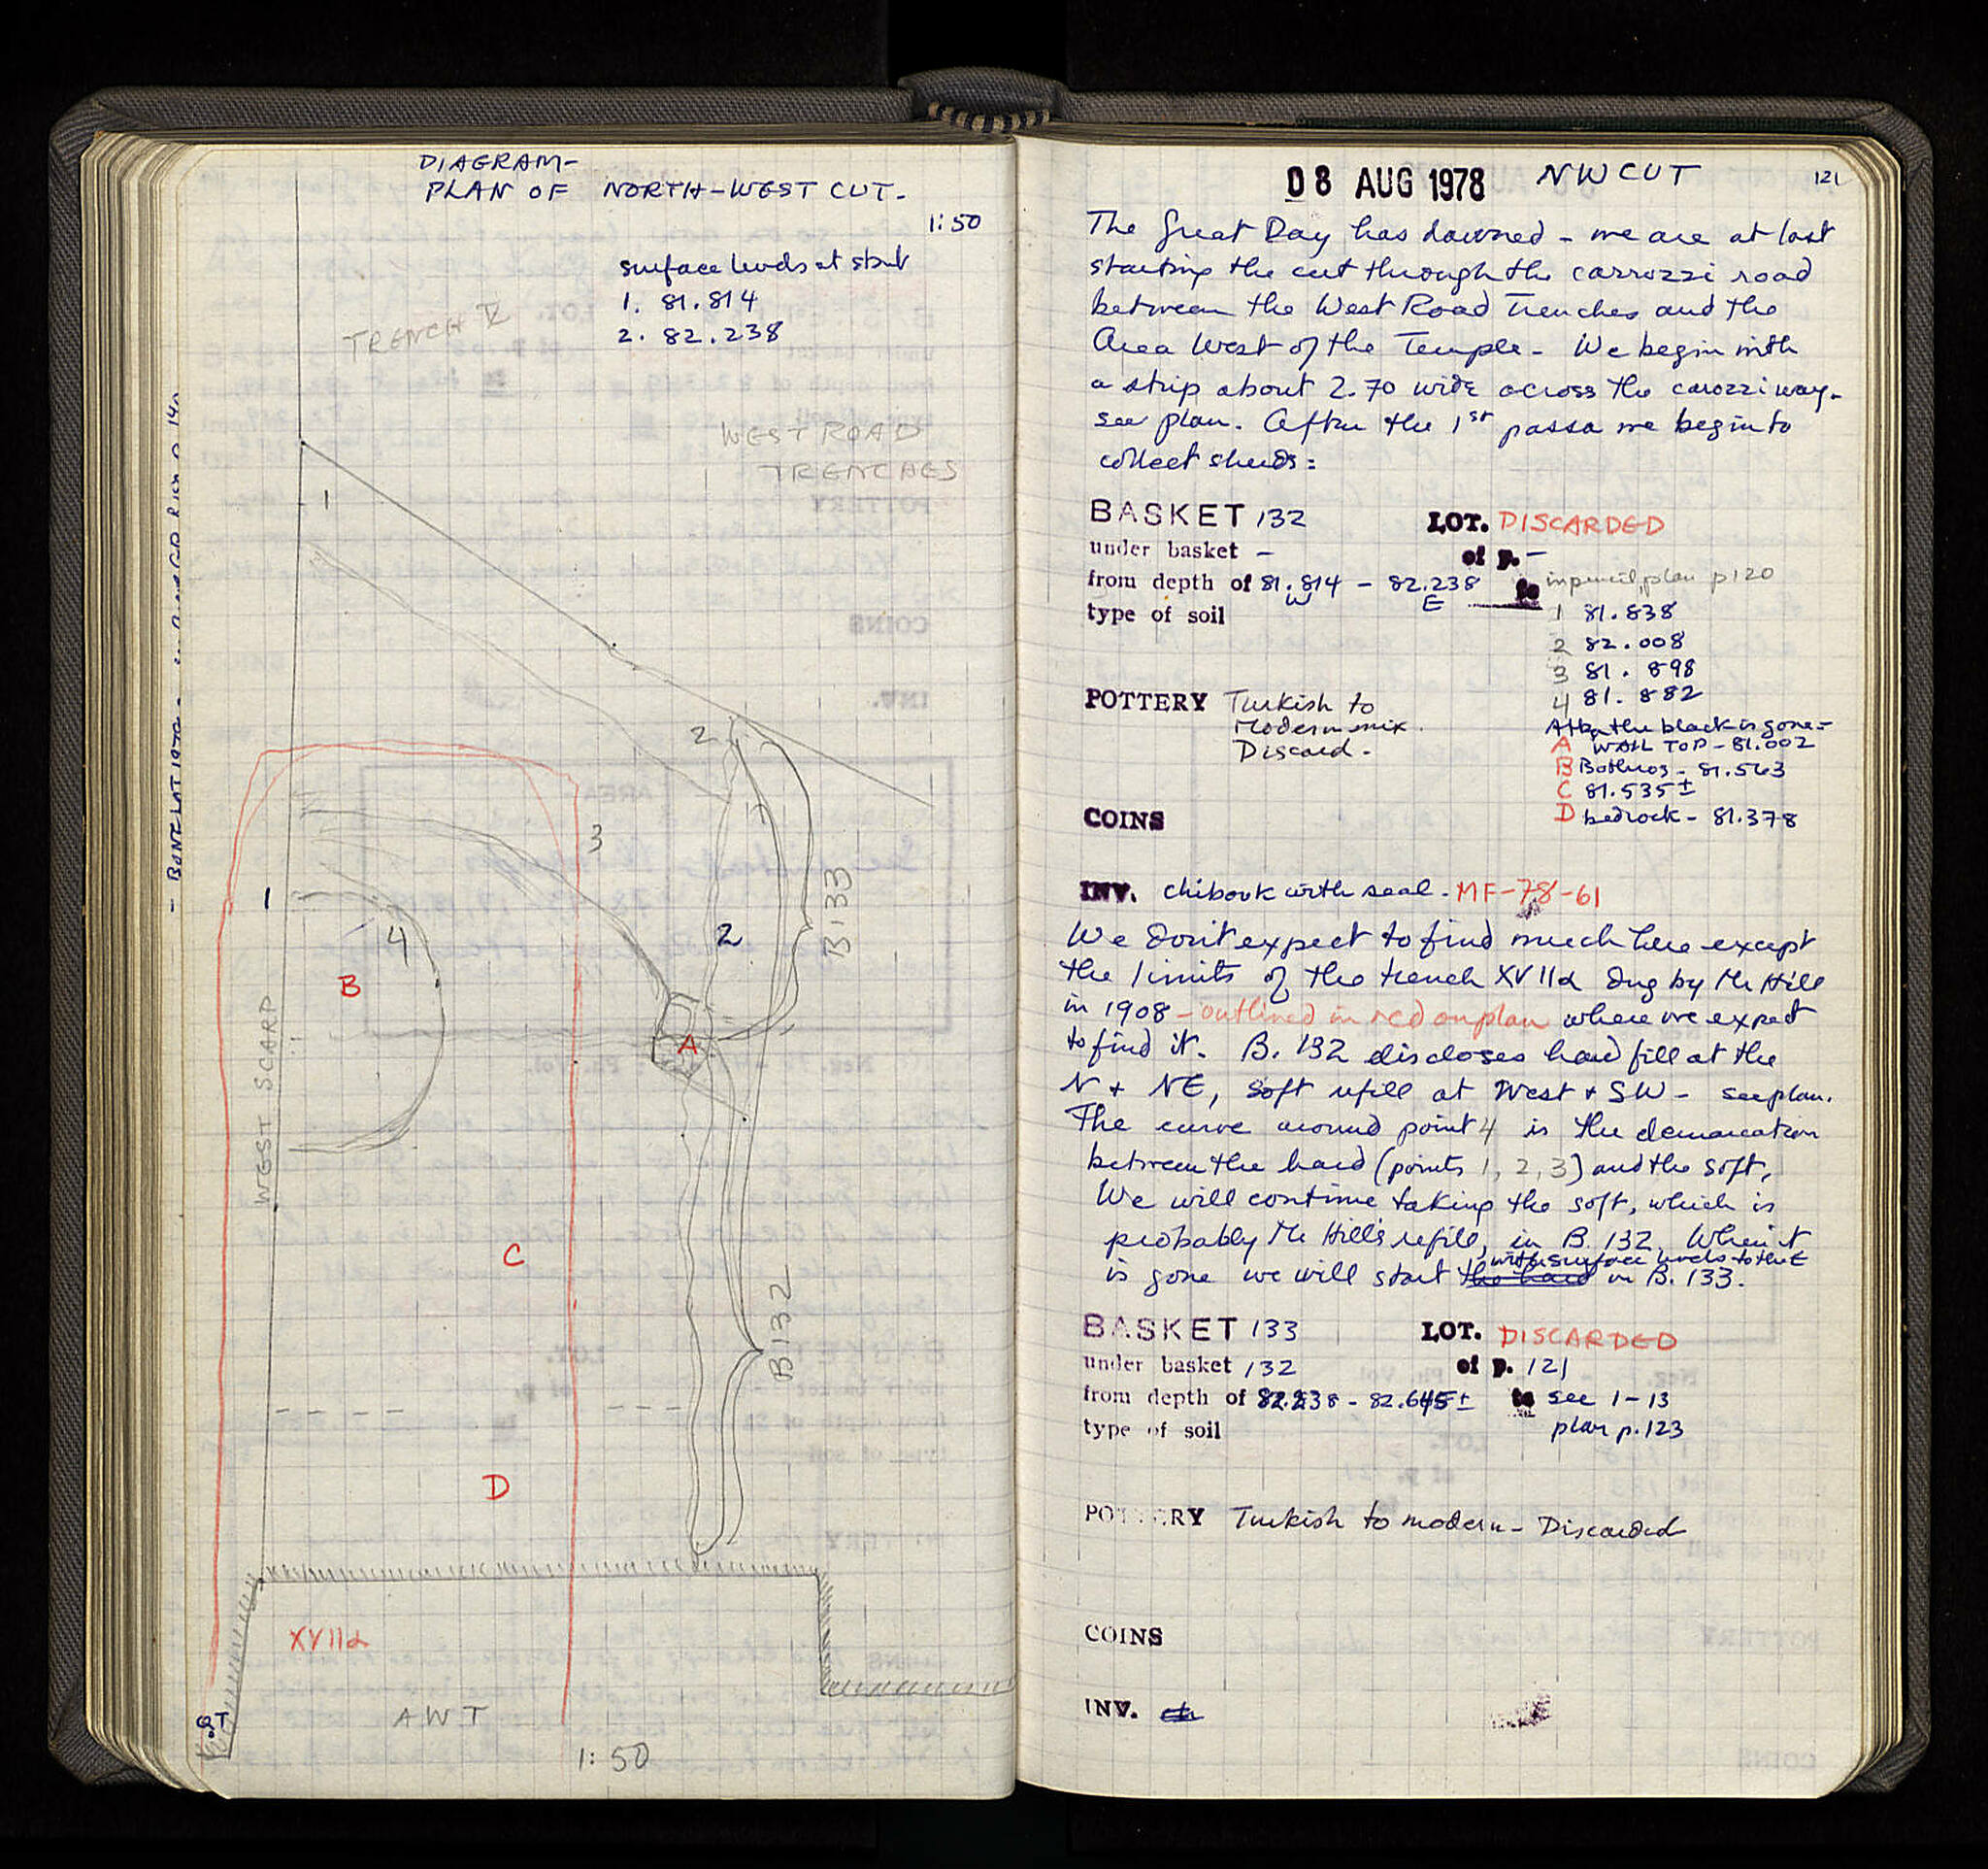 DIAGRAM-
PLAN OF NORTH-WEST CUT.
1:50
surface levels at start
1. 81.814
2. 82.238
TRENCH V
WEST ROAD
TRENCHES
1
2
3
1
4
2
B
A
B133
WEST SCARP
C
B132
D
XVIIα
AWT
1:50
08 AUG 1978 NW CUT 121
The Great Day has dawned - we are at last
starting the cut through the carrozzi road
between the West Road Trenches and the
Area West of the Temple - We begin with
a strip about 2.70 wide across the carozzi way -
see plan. After the 1st passa we begin to
collect sherds:
BASKET 132 LOT. DISCARDED
under basket - of p. -
from depth of 81.814 - 82.238 to in pencil, plan p 120
W E
type of soil
1 81.838
2 82.008
3 81.898
4 81.882
POTTERY Turkish to
Modern mix.
Discard -
After the black is gone =
A WALL TOP - 81.002
B Bothros - 81.563
C 81.535±
D bedrock - 81.378
COINS
INV. chibouk with seal - MF-78-61
We don't expect to find much here except
the limits of the trench XVIIα dug by Mr Hill
in 1908 - outlined in red on plan where we expect
to find it. B. 132 discloses hard fill at the
N + NE, soft refill at West + SW - see plan.
The curve around point 4 is the demarcation
between the hard (points 1, 2, 3) and the soft.
We will continue taking the soft, which is
probably Mr Hill's refill, in B. 132. When it
with surface levels to the E
is gone we will start the hard in B. 133.
BASKET 133 LOT. DISCARDED
under basket 132 of p. 121
from depth of 82.238 - 82.645± to see 1-13
type of soil plan p. 123
POTTERY Turkish to modern - Discarded
COINS
INV.